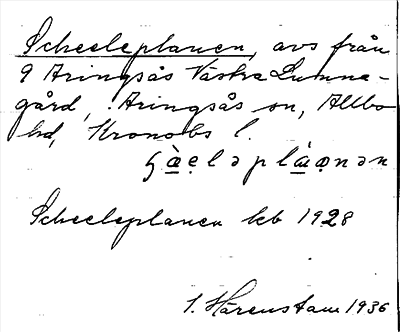 Scheeleplanen, avs från
9 Aringsås Västra Lunna-
gård, Aringsås sn, Allbo
hd, Kronobs l.
Scheeleplanen kb 1928
S. Härenstam 1936